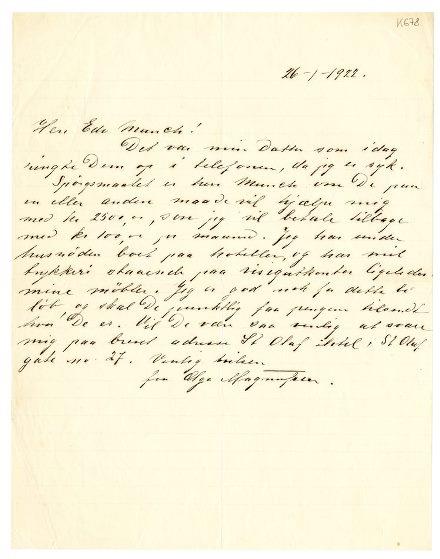 K678
26-1-1922.
Herr Edv Munch!
Det var min datter som idag
ringte Dem op i telefonen, da jeg er syk.
Spörgsmaalet er herr Munch om De paa
en eller anden maade vil hjælpe mig
med kr 2500, som jeg vil betale tilbage
med kr 100, pr maaned. Jeg har under
husnöden boet paa hoteller, og har mit
trykkeri staaende paa ligeledes
mine möbler. Jeg er god nok for dette be
löb og skal De punktlig faa pengene tilsendt
hvor De er. Vil De være saa venlig at svare
mig paa brevet adresse St Olaf Hotel, St Olaf
gate no. 27. Venlig hilsen
fra Olga Magnussen.